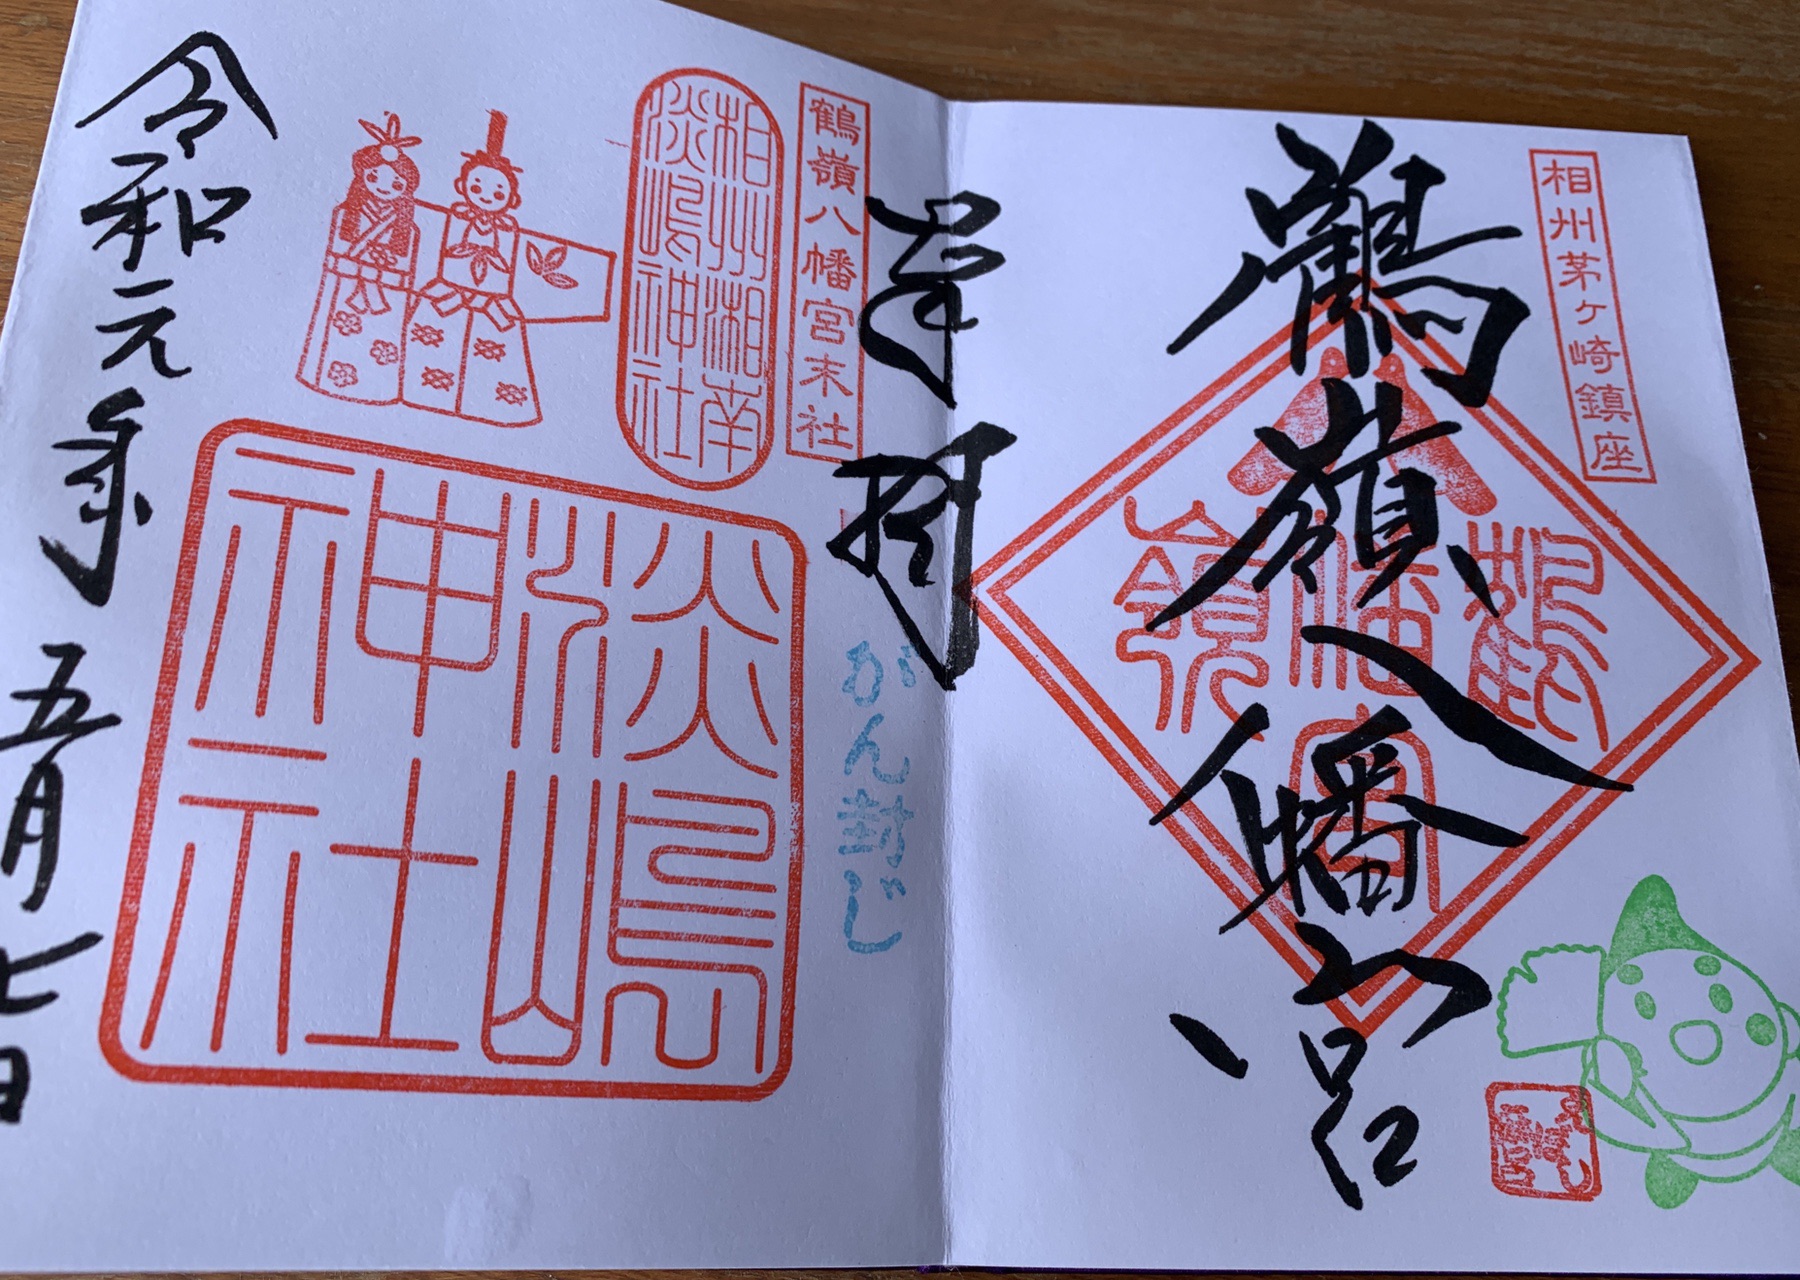 相州茅ヶ崎鎮座
鶴嶺八幡宮
鶴嶺八幡宮
奉拝
がん封じ
鶴嶺八幡宮末社
相州湘南
淡嶋神社
淡嶋
神社
令和元年五月七日